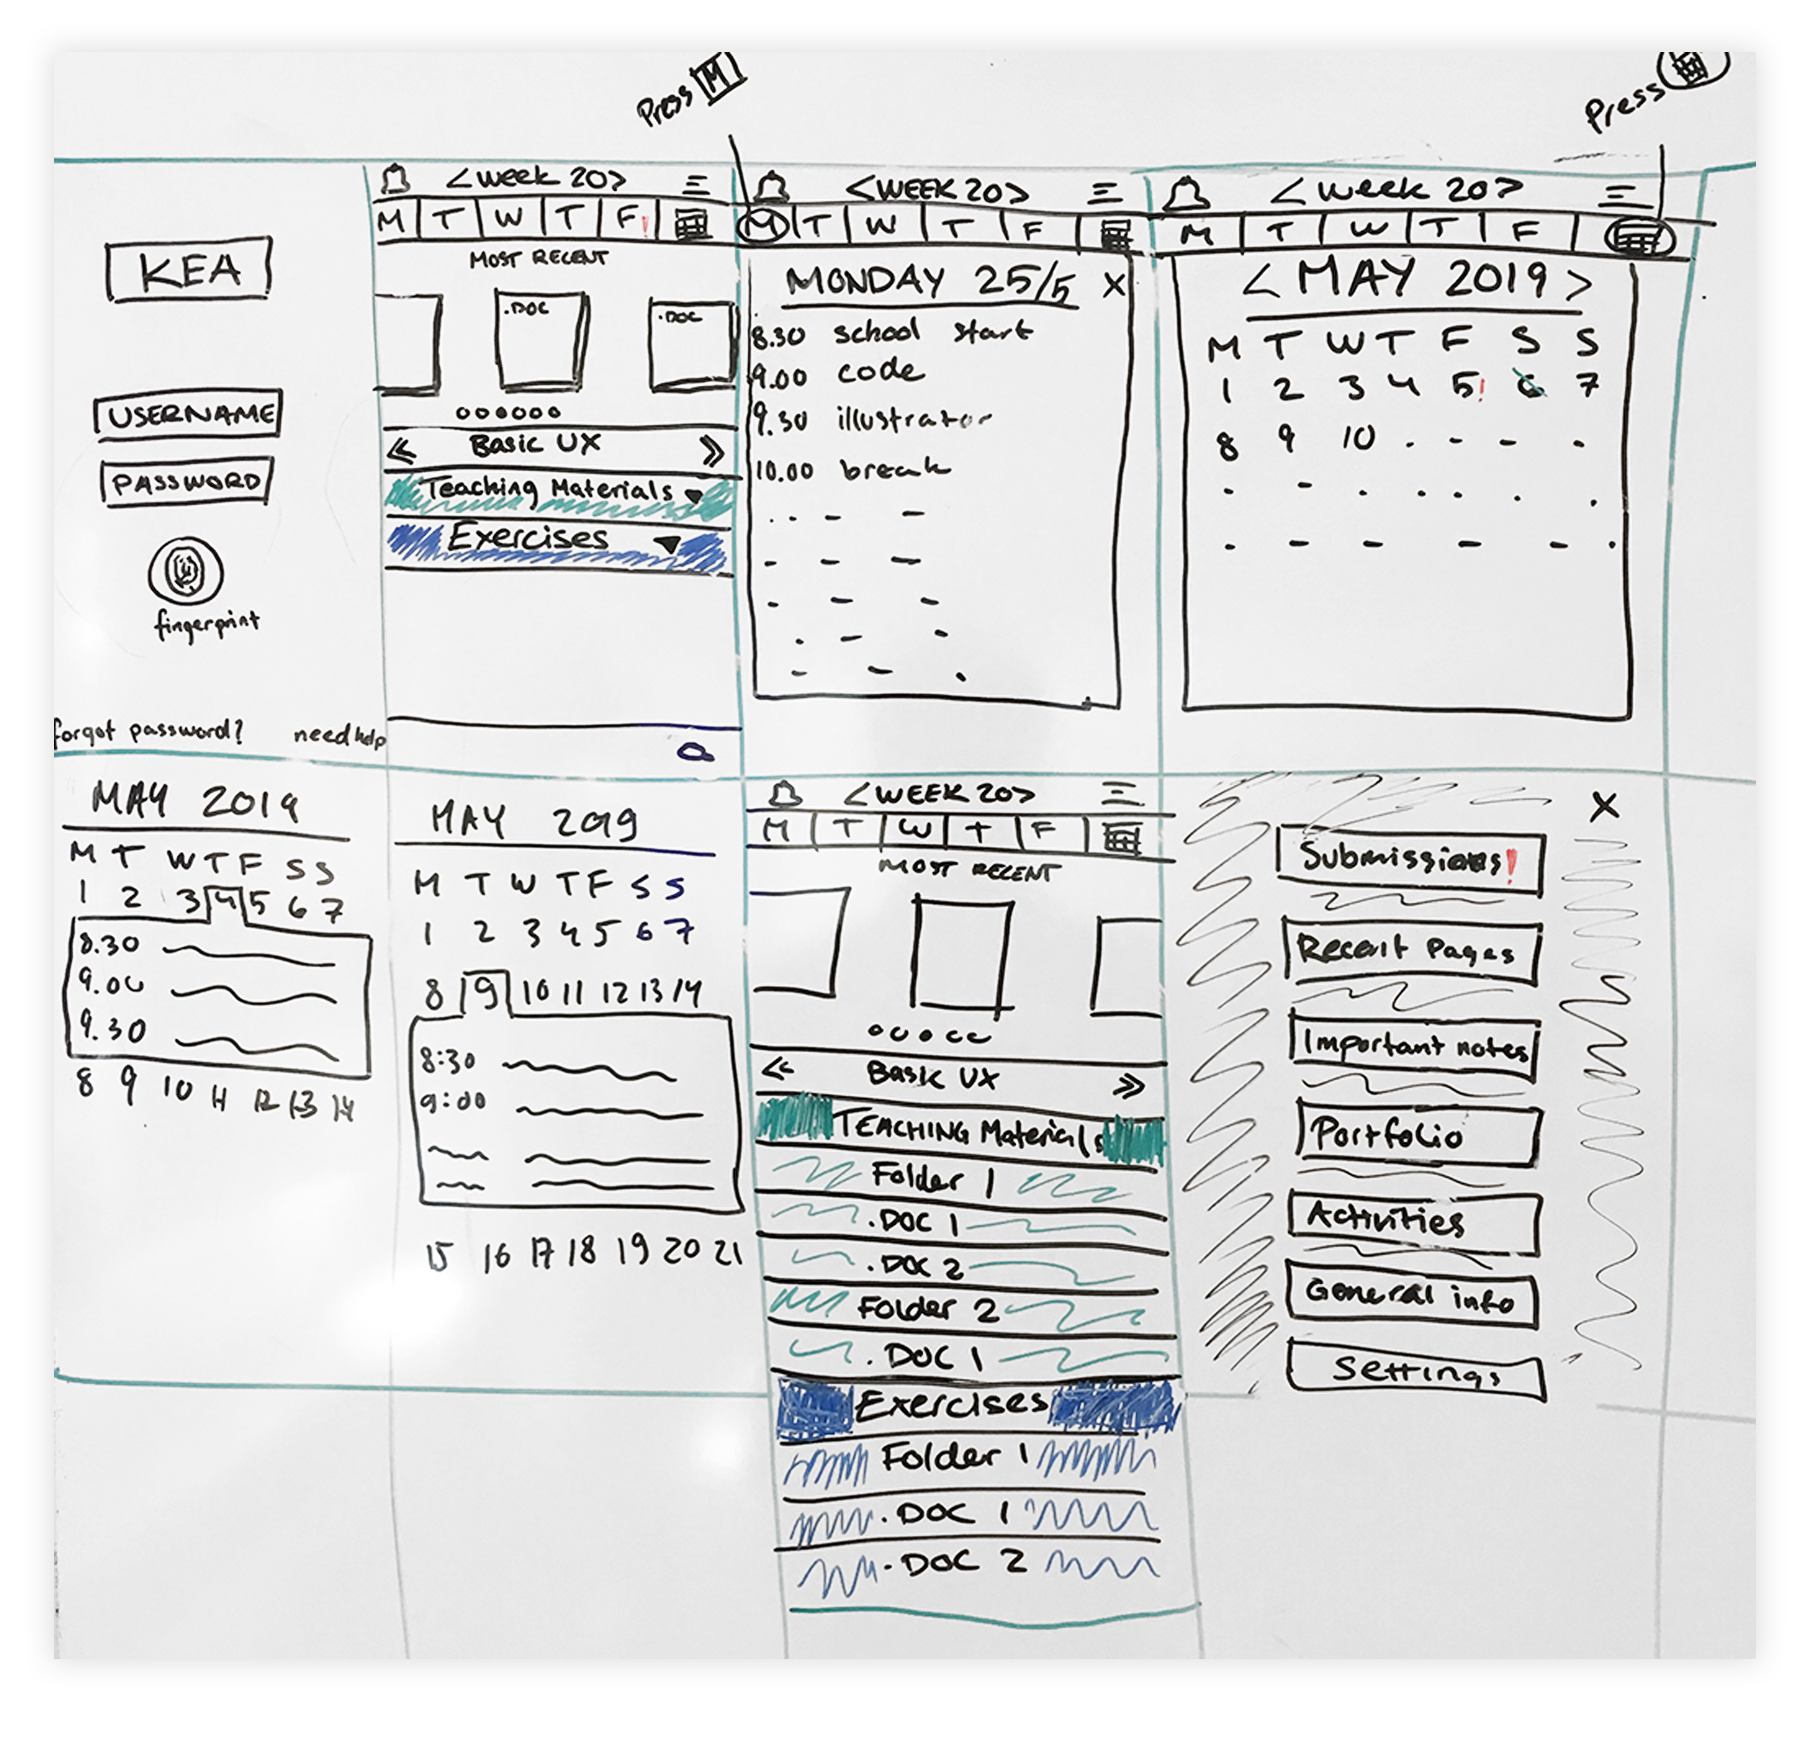 Press M
Press
KEA
USERNAME
PASSWORD
fingerprint
forgot password? need help
<week 20>
M T W T F!
MOST RECENT
.DOC .DOC
<< Basic UX >>
Teaching Materials
Exercises
<WEEK 20>
M T W T F
MONDAY 25/5 X
8.30 school start
9.00 code
9.30 illustrator
10.00 break
<week 20>
M T W T F
<MAY 2019>
M T W T F S S
1 2 3 4 5! 6 7
8 9 10
MAY 2019
M T W T F S S
1 2 3 4 5 6 7
8.30
9.00
9.30
8 9 10 11 12 13 14
MAY 2019
M T W T F S S
1 2 3 4 5 6 7
8 9 10 11 12 13 14
8:30
9:00
15 16 17 18 19 20 21
<WEEK 20>
M T W T F
MOST RECENT
<< Basic UX >>
TEACHING Materials
Folder 1
.DOC 1
.DOC 2
Folder 2
.DOC 1
Exercises
Folder 1
.DOC 1
.DOC 2
X
Submissions!
Recent Pages
Important notes
Portfolio
Activities
General info
Settings